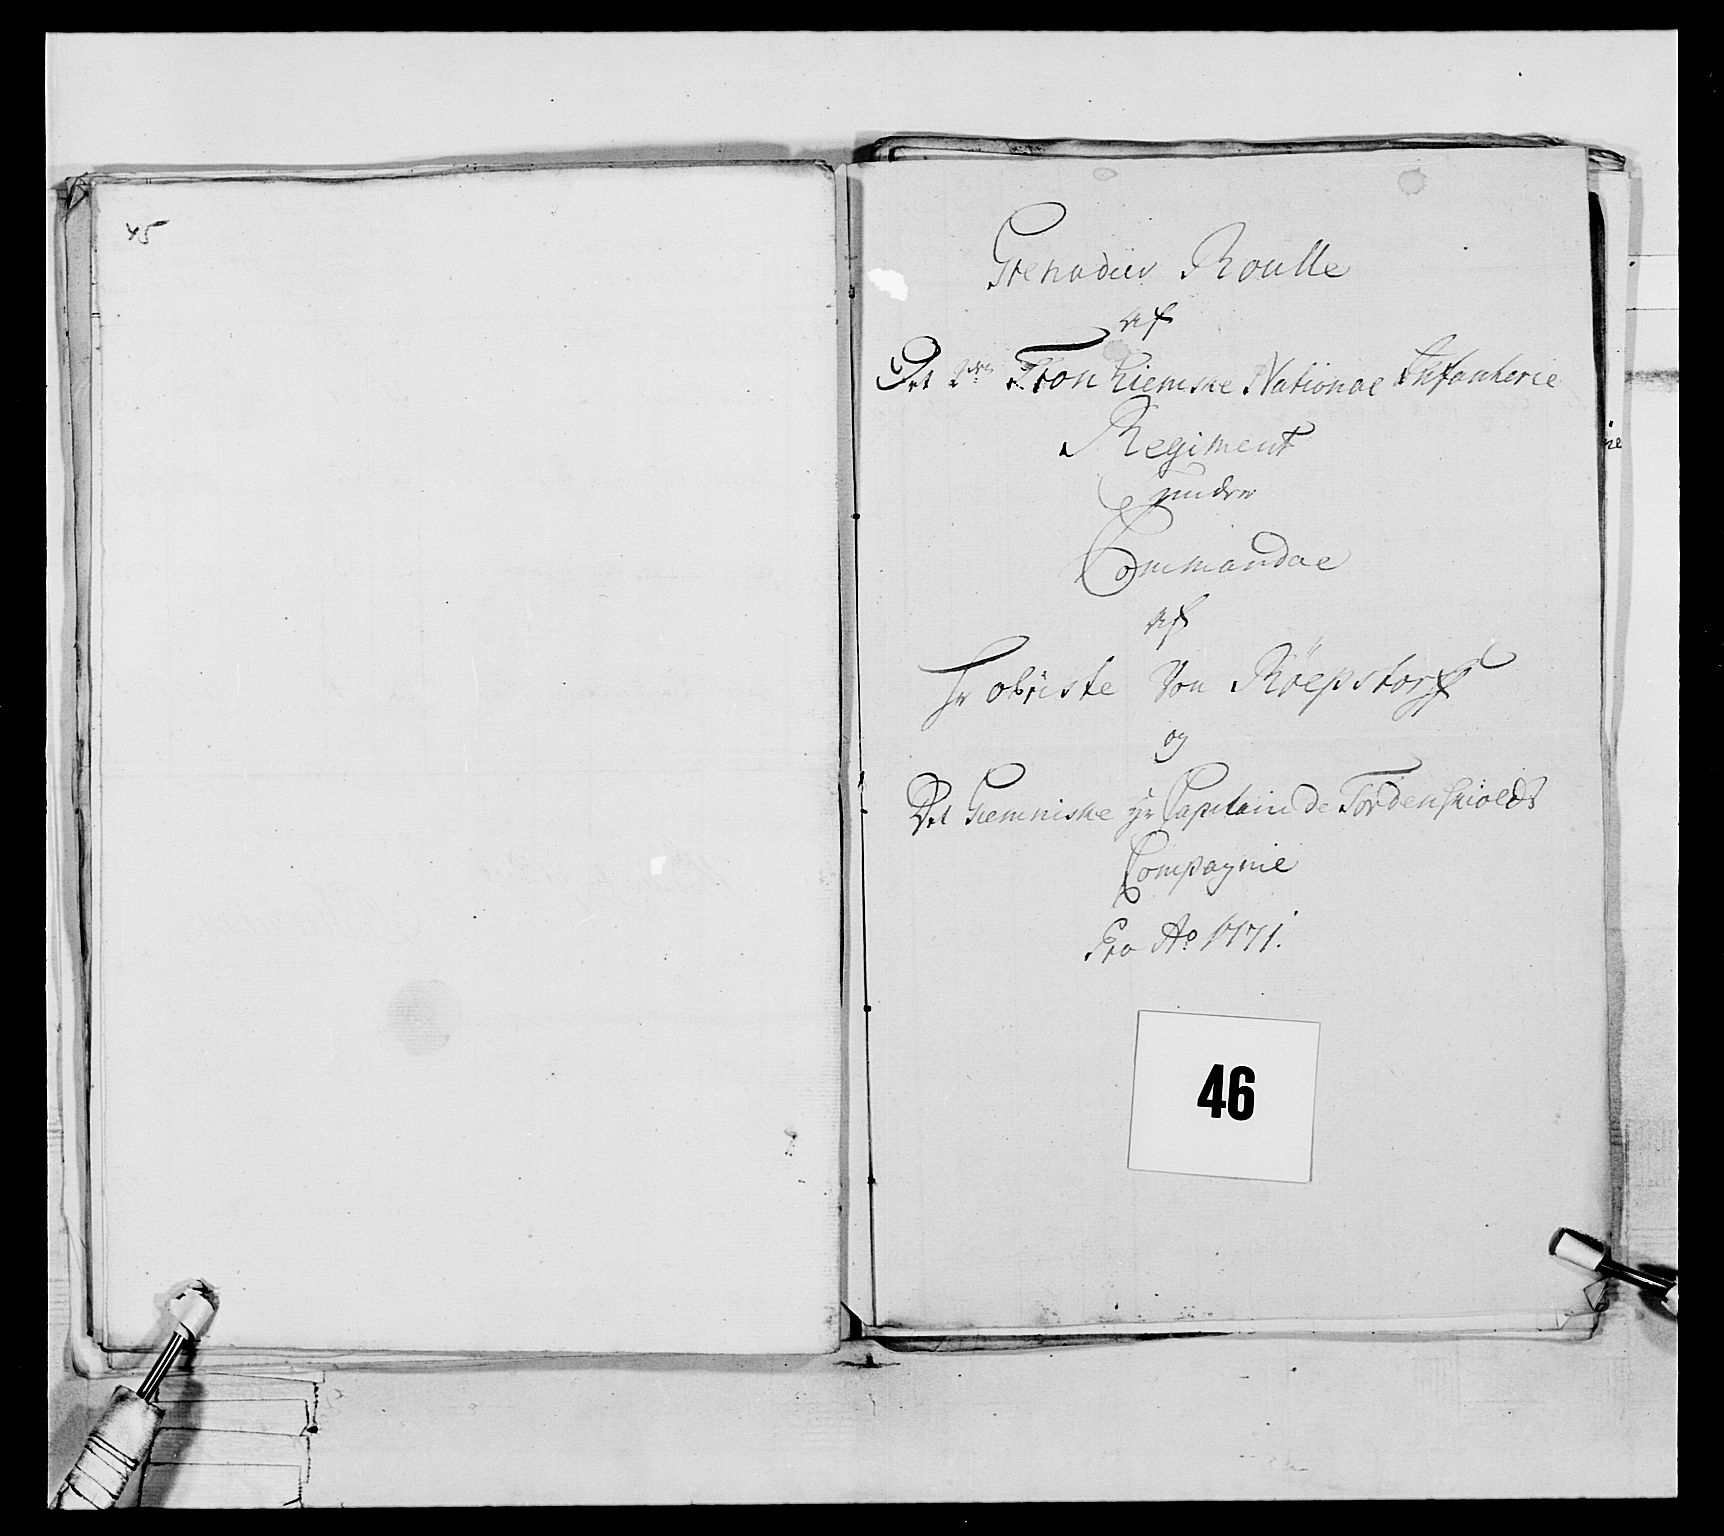 45
Grenadier Roulle
af
Det 2den Tronhiemske National Infanterie
Regiment
under
Commandoe
af
Hr obriste Von Röepstorff
og
Det Hemniske Hr Captain de Tordenskiolds
Compagnie
Pro Ao 1771.
46